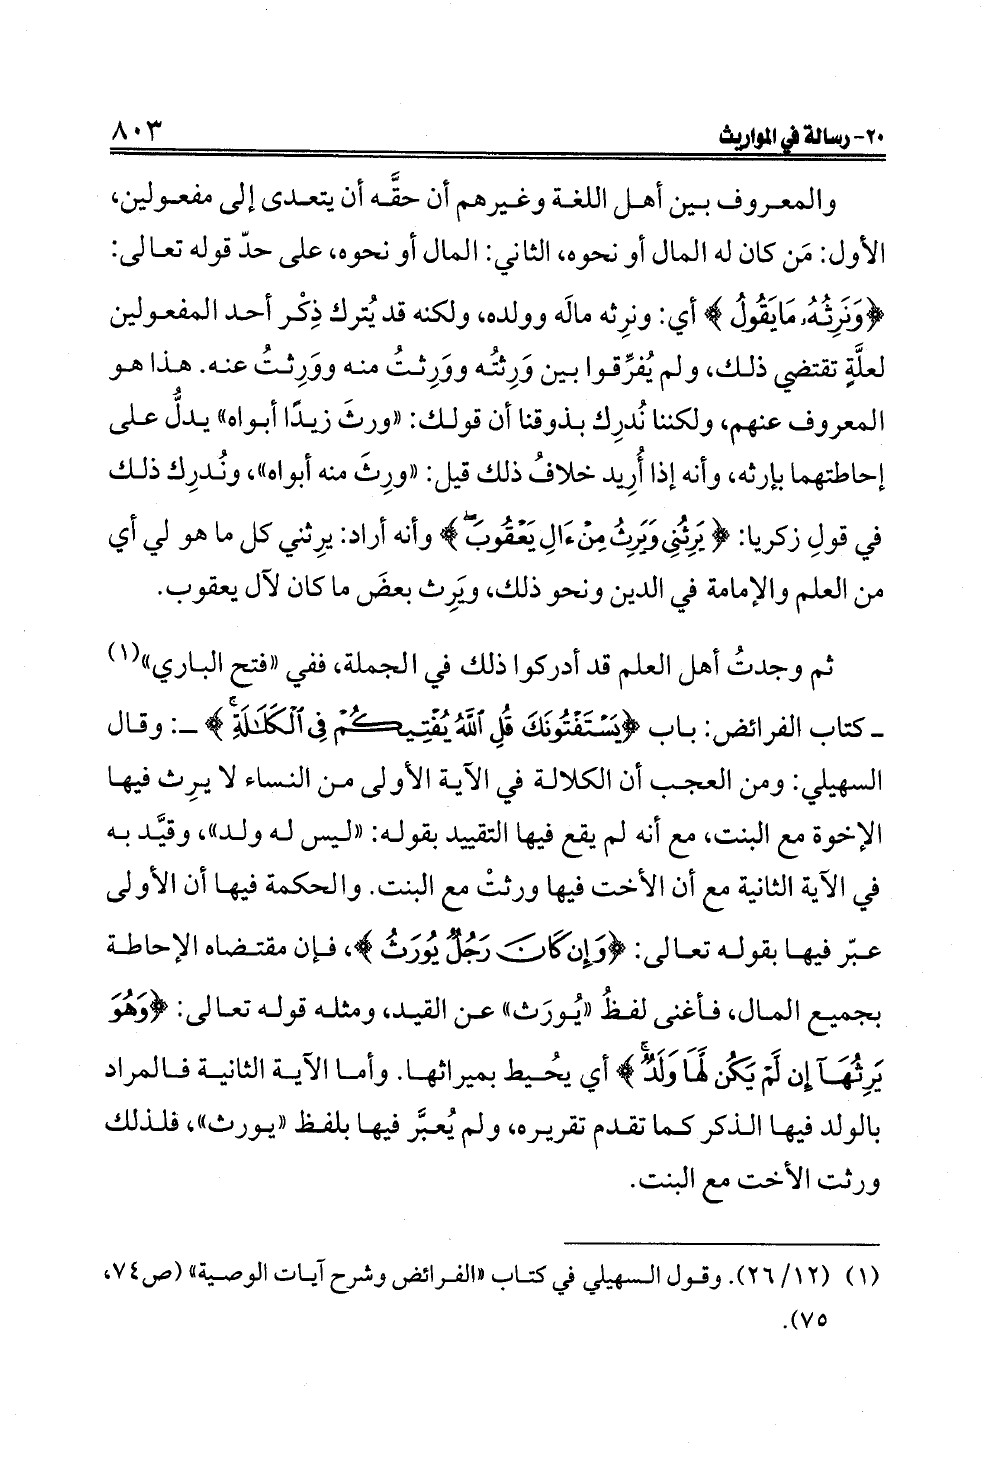 ٢٠- رسالة في المواريث ٨٠٣
والمعروف بين أهل اللغة وغيرهم أن حقَّه أن يتعدى إلى مفعولين،
الأول: مَن كان له المال أو نحوه، الثاني: المال أو نحوه، على حدّ قوله تعالى:
﴿وَنَرِثُهُۥ مَا يَقُولُ﴾ أي: ونرِثه مالَه وولده، ولكنه قد يُترك ذِكْر أحد المفعولين
لعلَّةٍ تقتضي ذلك، ولم يُفرِّقوا بين وَرِثتُه ووَرِثتُ منه ووَرِثتُ عنه. هذا هو
المعروف عنهم، ولكننا نُدرِك بذوقنا أن قولك: «ورثَ زيدًا أبواه» يدلُّ على
إحاطتهما بإرثه، وأنه إذا أُريد خلافُ ذلك قيل: «ورِثَ منه أبواه»، ونُدرِك ذلك
في قولِ زكريا: ﴿يَرِثُنِي وَيَرِثُ مِنْ ءَالِ يَعْقُوبَ ۖ﴾ وأنه أراد: يرِثني كل ما هو لي أي
من العلم والإمامة في الدين ونحو ذلك، ويَرِث بعضَ ما كان لآل يعقوب.
ثم وجدتُ أهل العلم قد أدركوا ذلك في الجملة، ففي «فتح الباري»(١)
ـ كتاب الفرائض: باب ﴿يَسْتَفْتُونَكَ قُلِ ٱللَّهُ يُفْتِيكُمْ فِي ٱلْكَلَٰلَةِ ۚ﴾ ـ: وقال
السهيلي: ومن العجب أن الكلالة في الآية الأولى من النساء لا يرِث فيها
الإخوة مع البنت، مع أنه لم يقع فيها التقييد بقوله: «ليس له ولد»، وقيَّد به
في الآية الثانية مع أن الأخت فيها ورثتْ مع البنت. والحكمة فيها أن الأولى
عبّر فيها بقوله تعالى: ﴿وَإِن كَانَ رَجُلٌ يُورَثُ﴾، فإن مقتضاه الإحاطة
بجميع المال، فأغنى لفظُ «يُورَث» عن القيد، ومثله قوله تعالى: ﴿وَهُوَ
يَرِثُهَآ إِن لَّمْ يَكُن لَّهَا وَلَدٌ ۚ﴾ أي يحُيط بميراثها. وأما الآية الثانية فالمراد
بالولد فيها الذكر كما تقدم تقريره، ولم يُعبَّر فيها بلفظ «يورث»، فلذلك
ورثت الأخت مع البنت.
(١) (١٢/ ٢٦). وقول السهيلي في كتاب «الفرائض وشرح آيات الوصية» (ص٧٤،
٧٥).